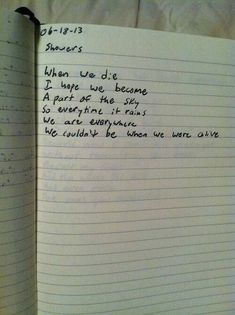 06-18-13
Showers
When we die
I hope we become
A part of the sky
So everytime it rains
We are everywhere
We couldn't be when we were alive